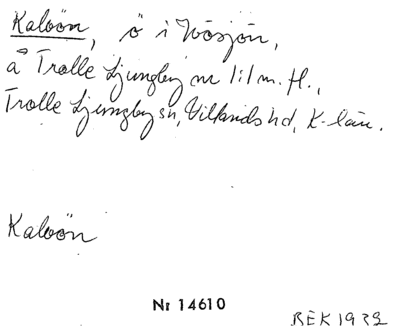 Kalvön, ö i Ivösjön,
å Trolle Ljungby nr 1:1 m. fl.,
Trolle Ljungby sn, Villands hd, K-län.
Kalvön
Nr 14610
REK 1932